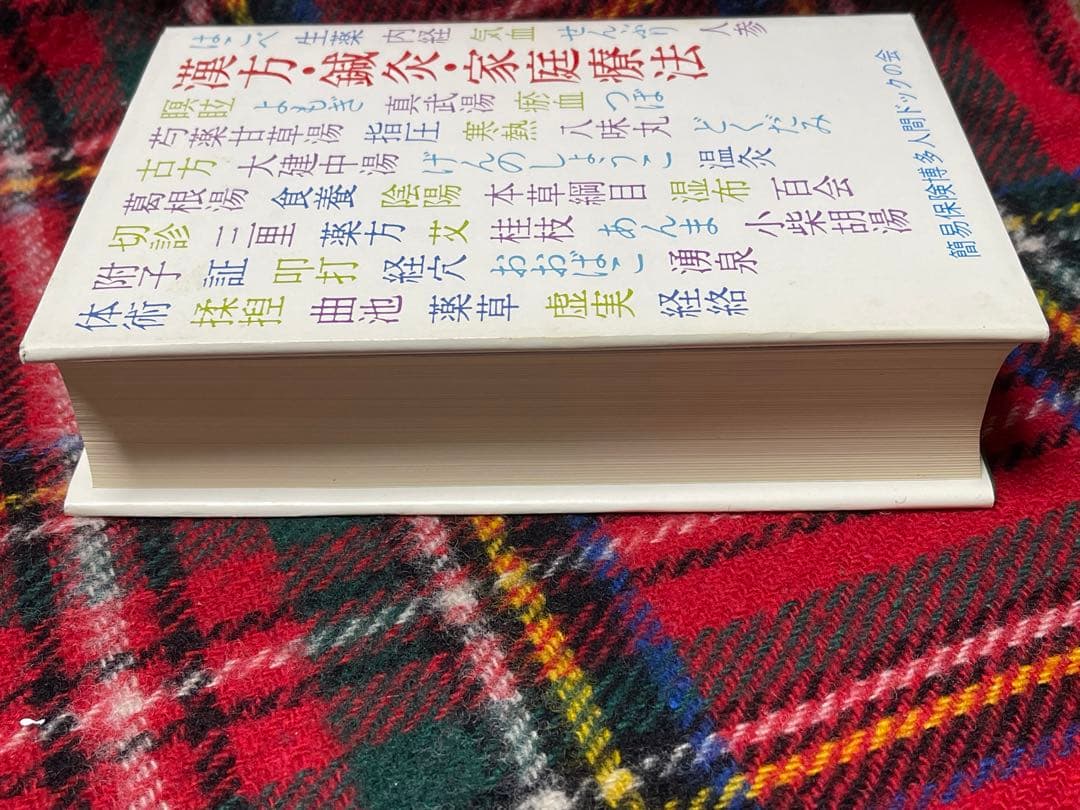 はこべ 生薬 内経 気血 せんぶり 人参
漢方・鍼灸・家庭療法
瞑眩 よもぎ 真武湯 瘀血 つぼ
芍薬甘草湯 指圧 寒熱 八味丸 どくだみ
古方 大健中湯 げんのしょうこ 温灸
葛根湯 食養 陰陽 本草綱目 湿布 百会
切診 三里 薬方 艾 桂枝 あんま 小柴胡湯
附子 証 叩打 経穴 おおばこ 湧泉
体術 揉捏 曲池 薬草 虚実 経絡
簡易保険博多人間ドックの会